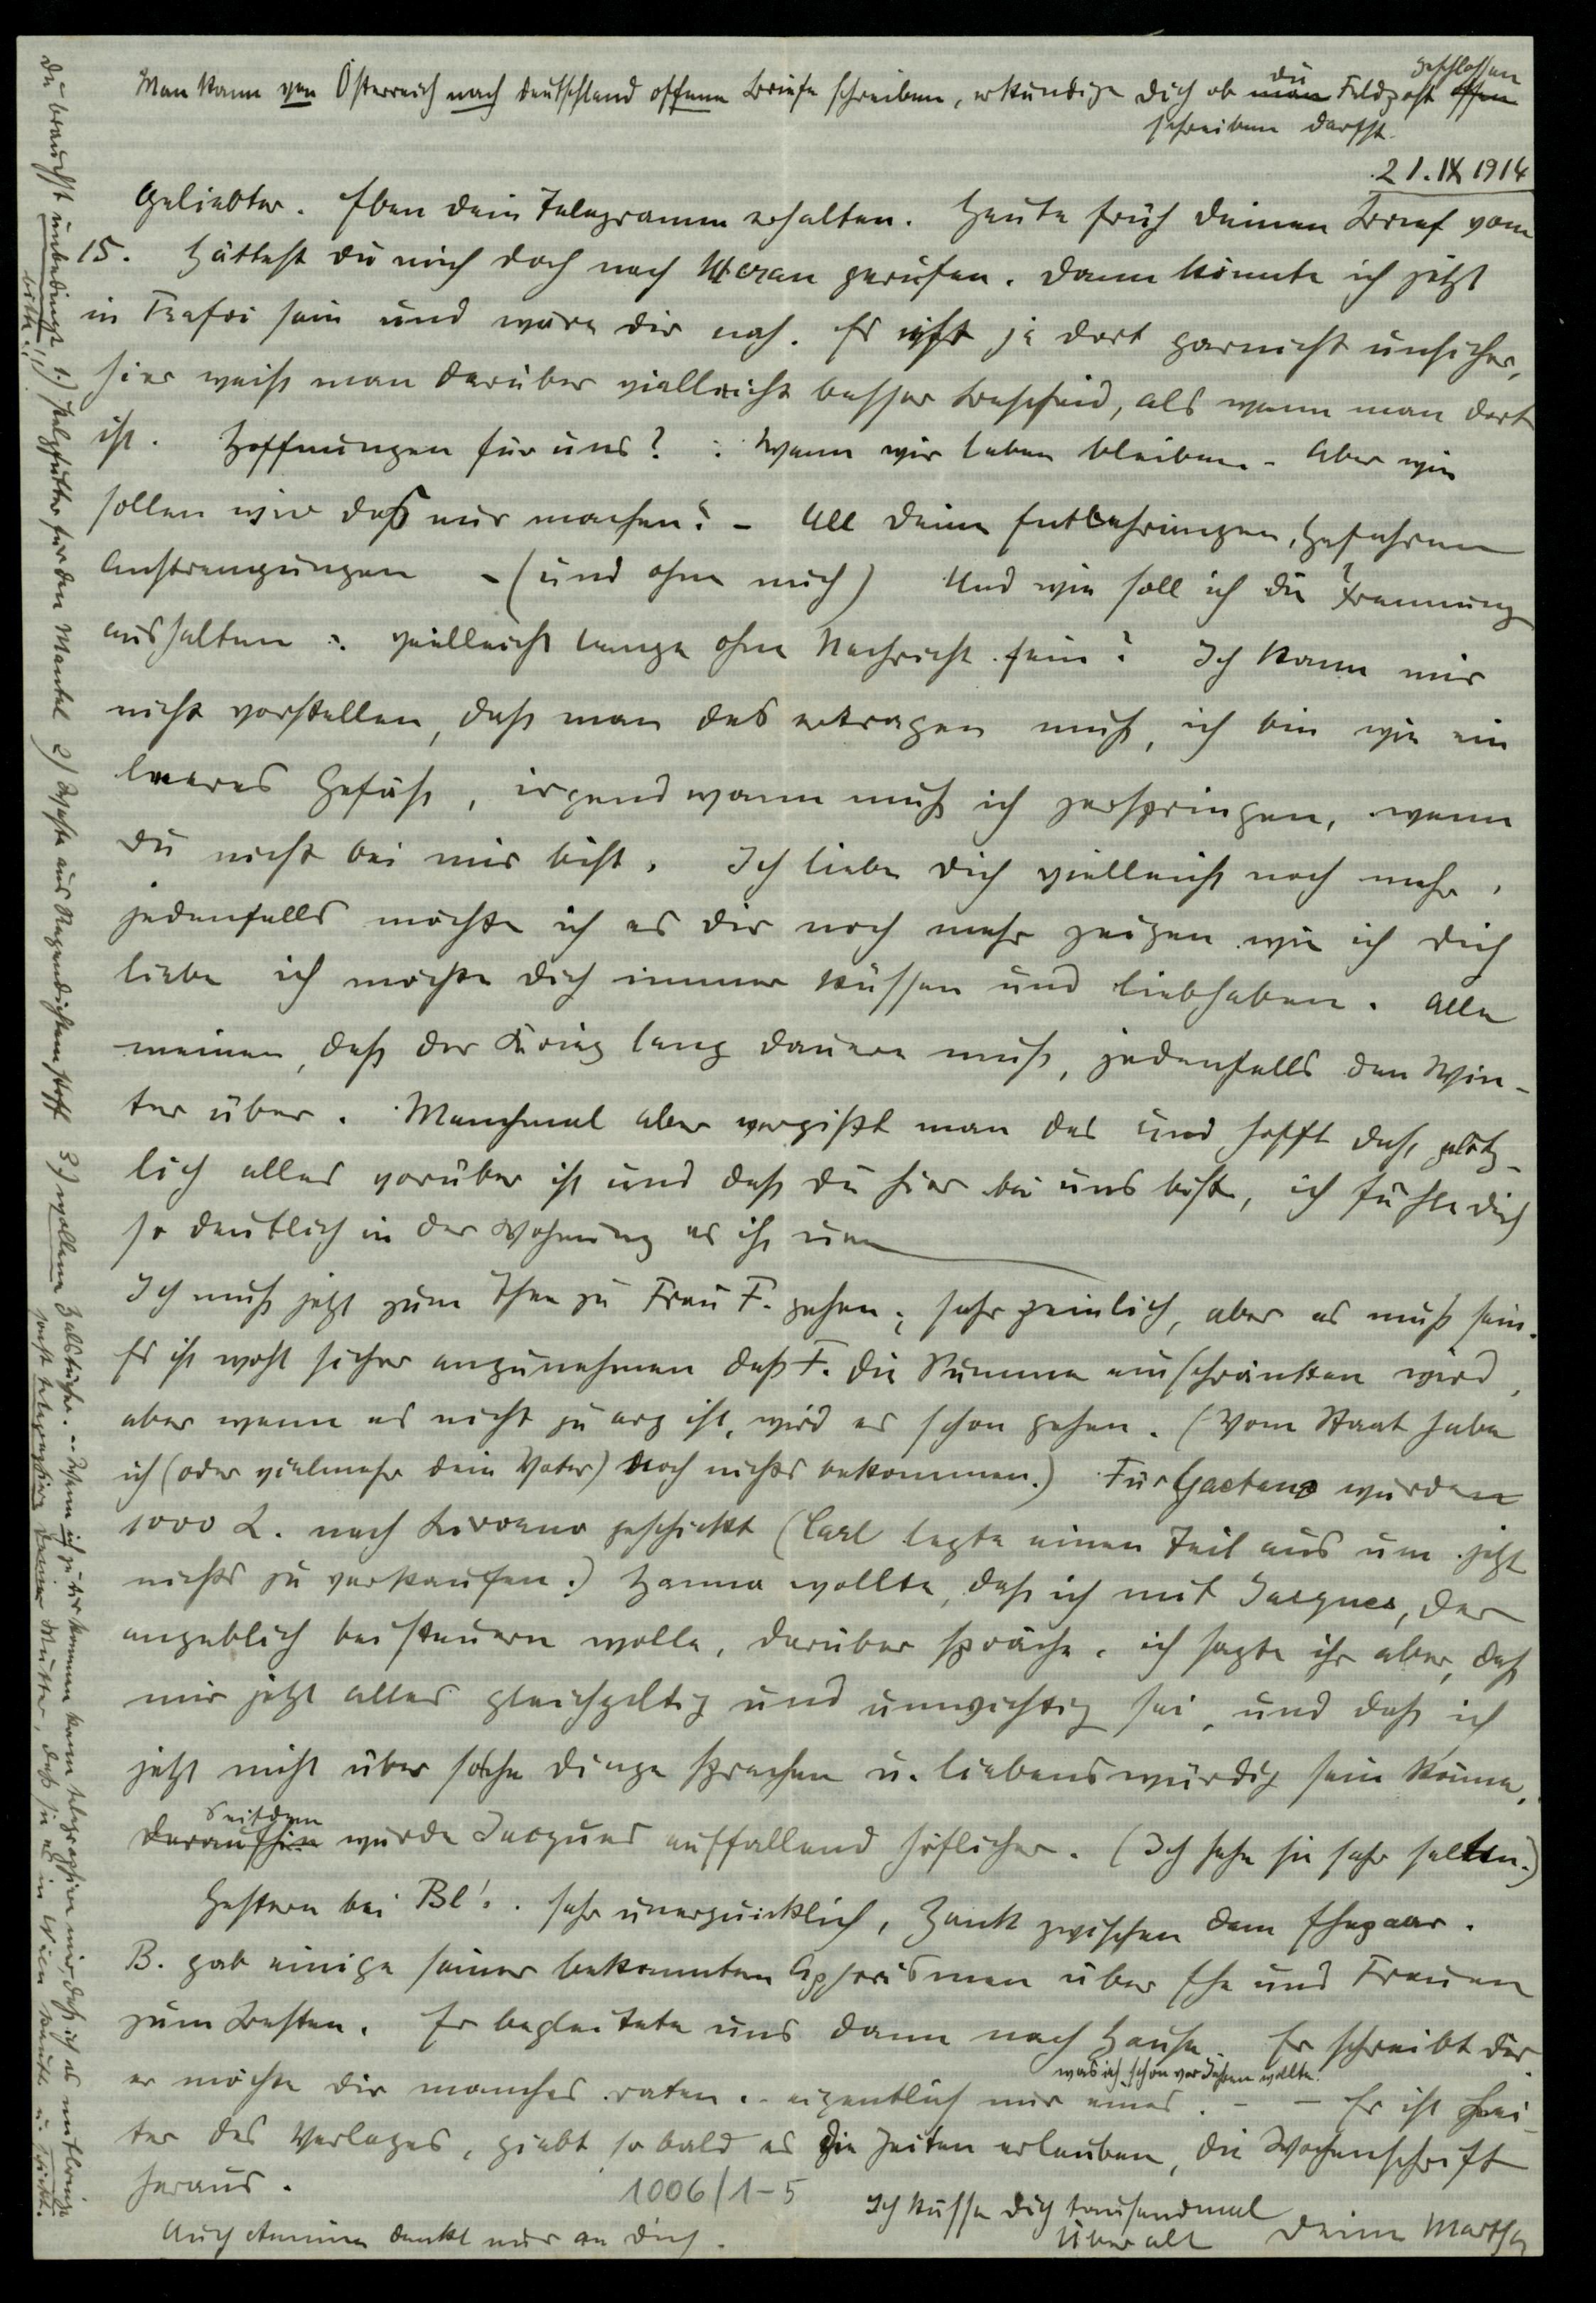 Man kann von Österreich nach Deutschland offene Briefe schreiben, erkundige Dich ob man du Feldpost offen geschlossen
schreiben darfst.
21.IX 1914
Geliebter. Eben dein Telegramm erhalten. Heute früh deinen Brief vom
15. Hättest du mich doch nach Meran gerufen. Dann könnte ich jetzt
in Trafoi sein und wäre dir nah. Es ist ja dort garnicht unsicher,
hier weiß man darüber vielleicht besser Bescheid, als wenn man dort
ist. Hoffnungen für uns? : Wenn wir leben bleiben - Aber wie
sollen wir daß nur machen? - All deine Entbehrungen, Gefahren
Anstrengungen - (und ohne mich) Und wie soll ich die Trennung
aushalten : vielleicht lange ohne Nachricht sein? Ich kann mir
nicht vorstellen, daß man das ertragen muß, ich bin wie ein
leeres Gefäß, irgendwann muß ich zerspringen, wenn
du nicht bei mir bist. Ich liebe dich vielleicht noch mehr,
jedenfalls möchte ich es dir noch mehr zeigen wie ich dich
liebe ich möchte dich immer küssen und liebhaben. Alle
meinen, daß der Krieg lang dauern muß, jedenfalls den Win-
ter über. Manchmal aber vergißt man das und hofft daß plötz-
lich alles vorüber ist und daß du hier bei uns bist, ich fühle dich
so deutlich in der Wohnung es ist nun
Ich muß jetzt zum Thee zu Frau F. gehen; sehr peinlich, aber es muß sein.
Es ist wohl sicher anzunehmen daß F. die Summe einschränken wird,
aber wenn es nicht zu arg ist, wird es schon gehen. (Vom Staat habe
ich (oder vielmehr dein Vater) noch nichts bekommen.) Für Gaetano wurden
1000 L. nach Livorno geschickt (Carl legte einen Teil aus um jetzt
nichts zu verkaufen.) Hanna wollte, daß ich mit Jacques, der
angeblich beisteuern wolle, darüber spräche. ich sagte ihr aber, daß
mir jetzt alles gleichgiltig und unwichtig sei, und daß ich
jetzt nicht über solche Dinge sprechen u. liebenswürdig sein könne.
daraufhin Seitdem wurde Jacques auffallend höflicher. (Ich sehe sie sehr selten.)
Gestern bei Bl'. . sehr unerquicklich, Zank zwischen dem Ehepaar.
B. gab einige seiner bekannten Aphorismen über Ehe und Frauen
zum Besten. Er begleitete uns dann nach Hause. Er schreibt dir
er möchte dir manches raten .. eigentlich nur eines. was ich schon vor Jahren wollte. - - Er ist Lei-
ter des Verlages, giebt sobald es die Zeiten erlauben, die Wochenschrift
heraus.
Ich küsse dich tausendmal
überall Deine Martha
Auch Annina denkt nur an dich.
1006/1-5
Du brauchst unbedingt 1.) Pelzfutter für den Mantel 2) Weste aus Regendichtem Stoff 3.) wollene Halstücher. .. Wenn ich zu dir kommen kann telegraphiere mir daß ich es mitbringe
bitte!!
sonst telegraphiere Deiner Mutter, daß sie es in Wien kauft u. schickt.